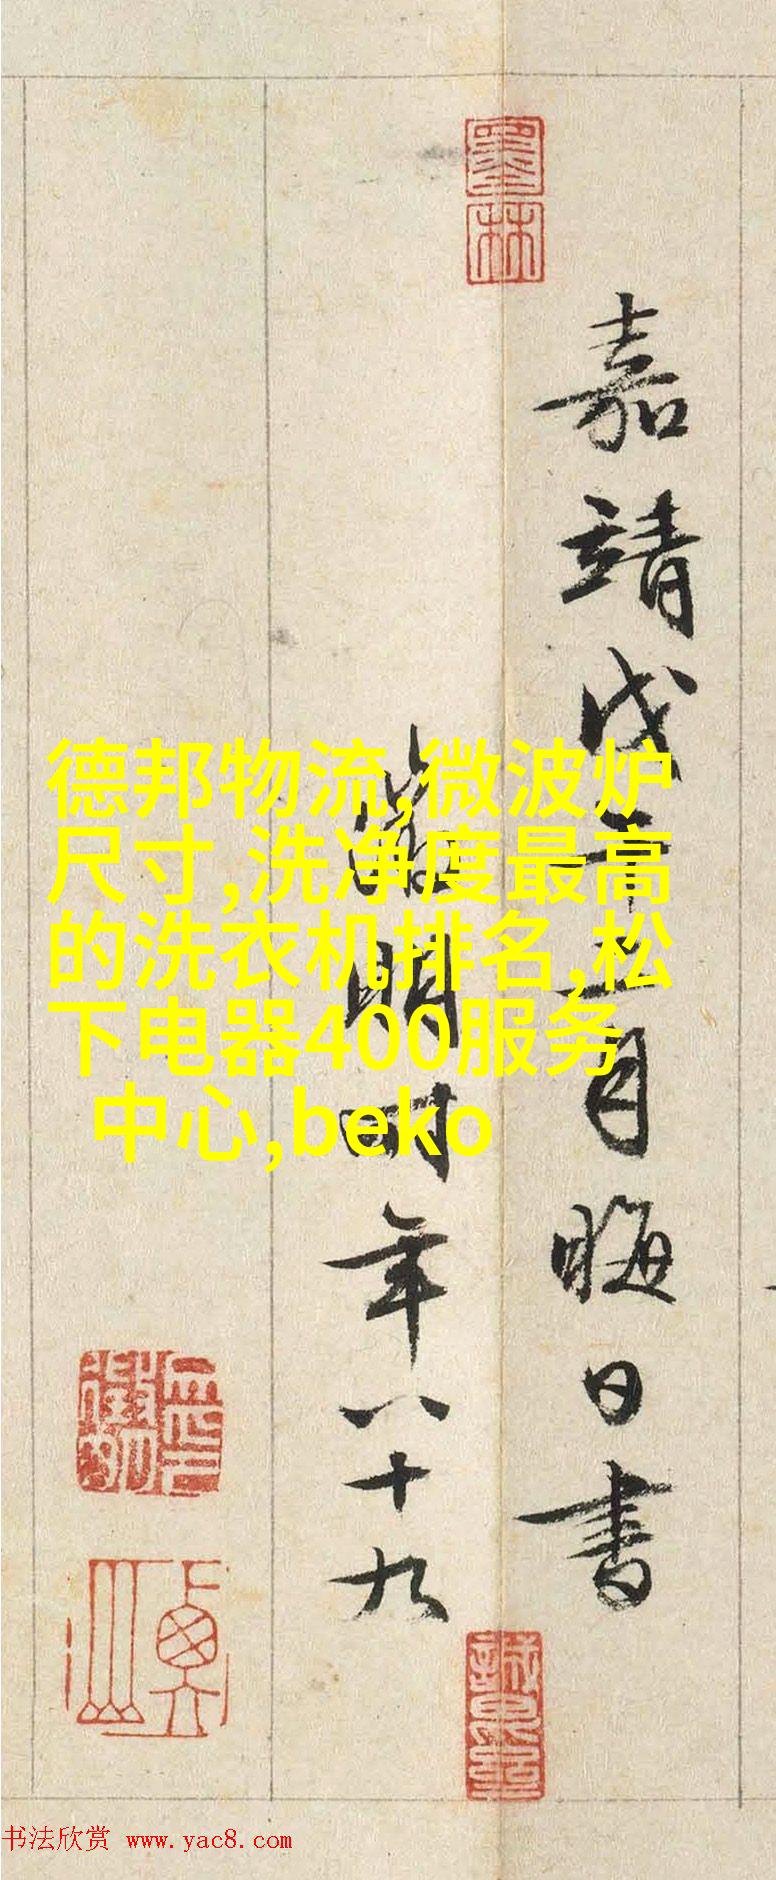 德邦物流,微波炉
尺寸,洗净度最高
的洗衣机排名,松
下电器400服务
中心,beko
墨林
嘉靖戊午二月晦日書
徵明時年八十九
书法欣赏 www.yac8.com